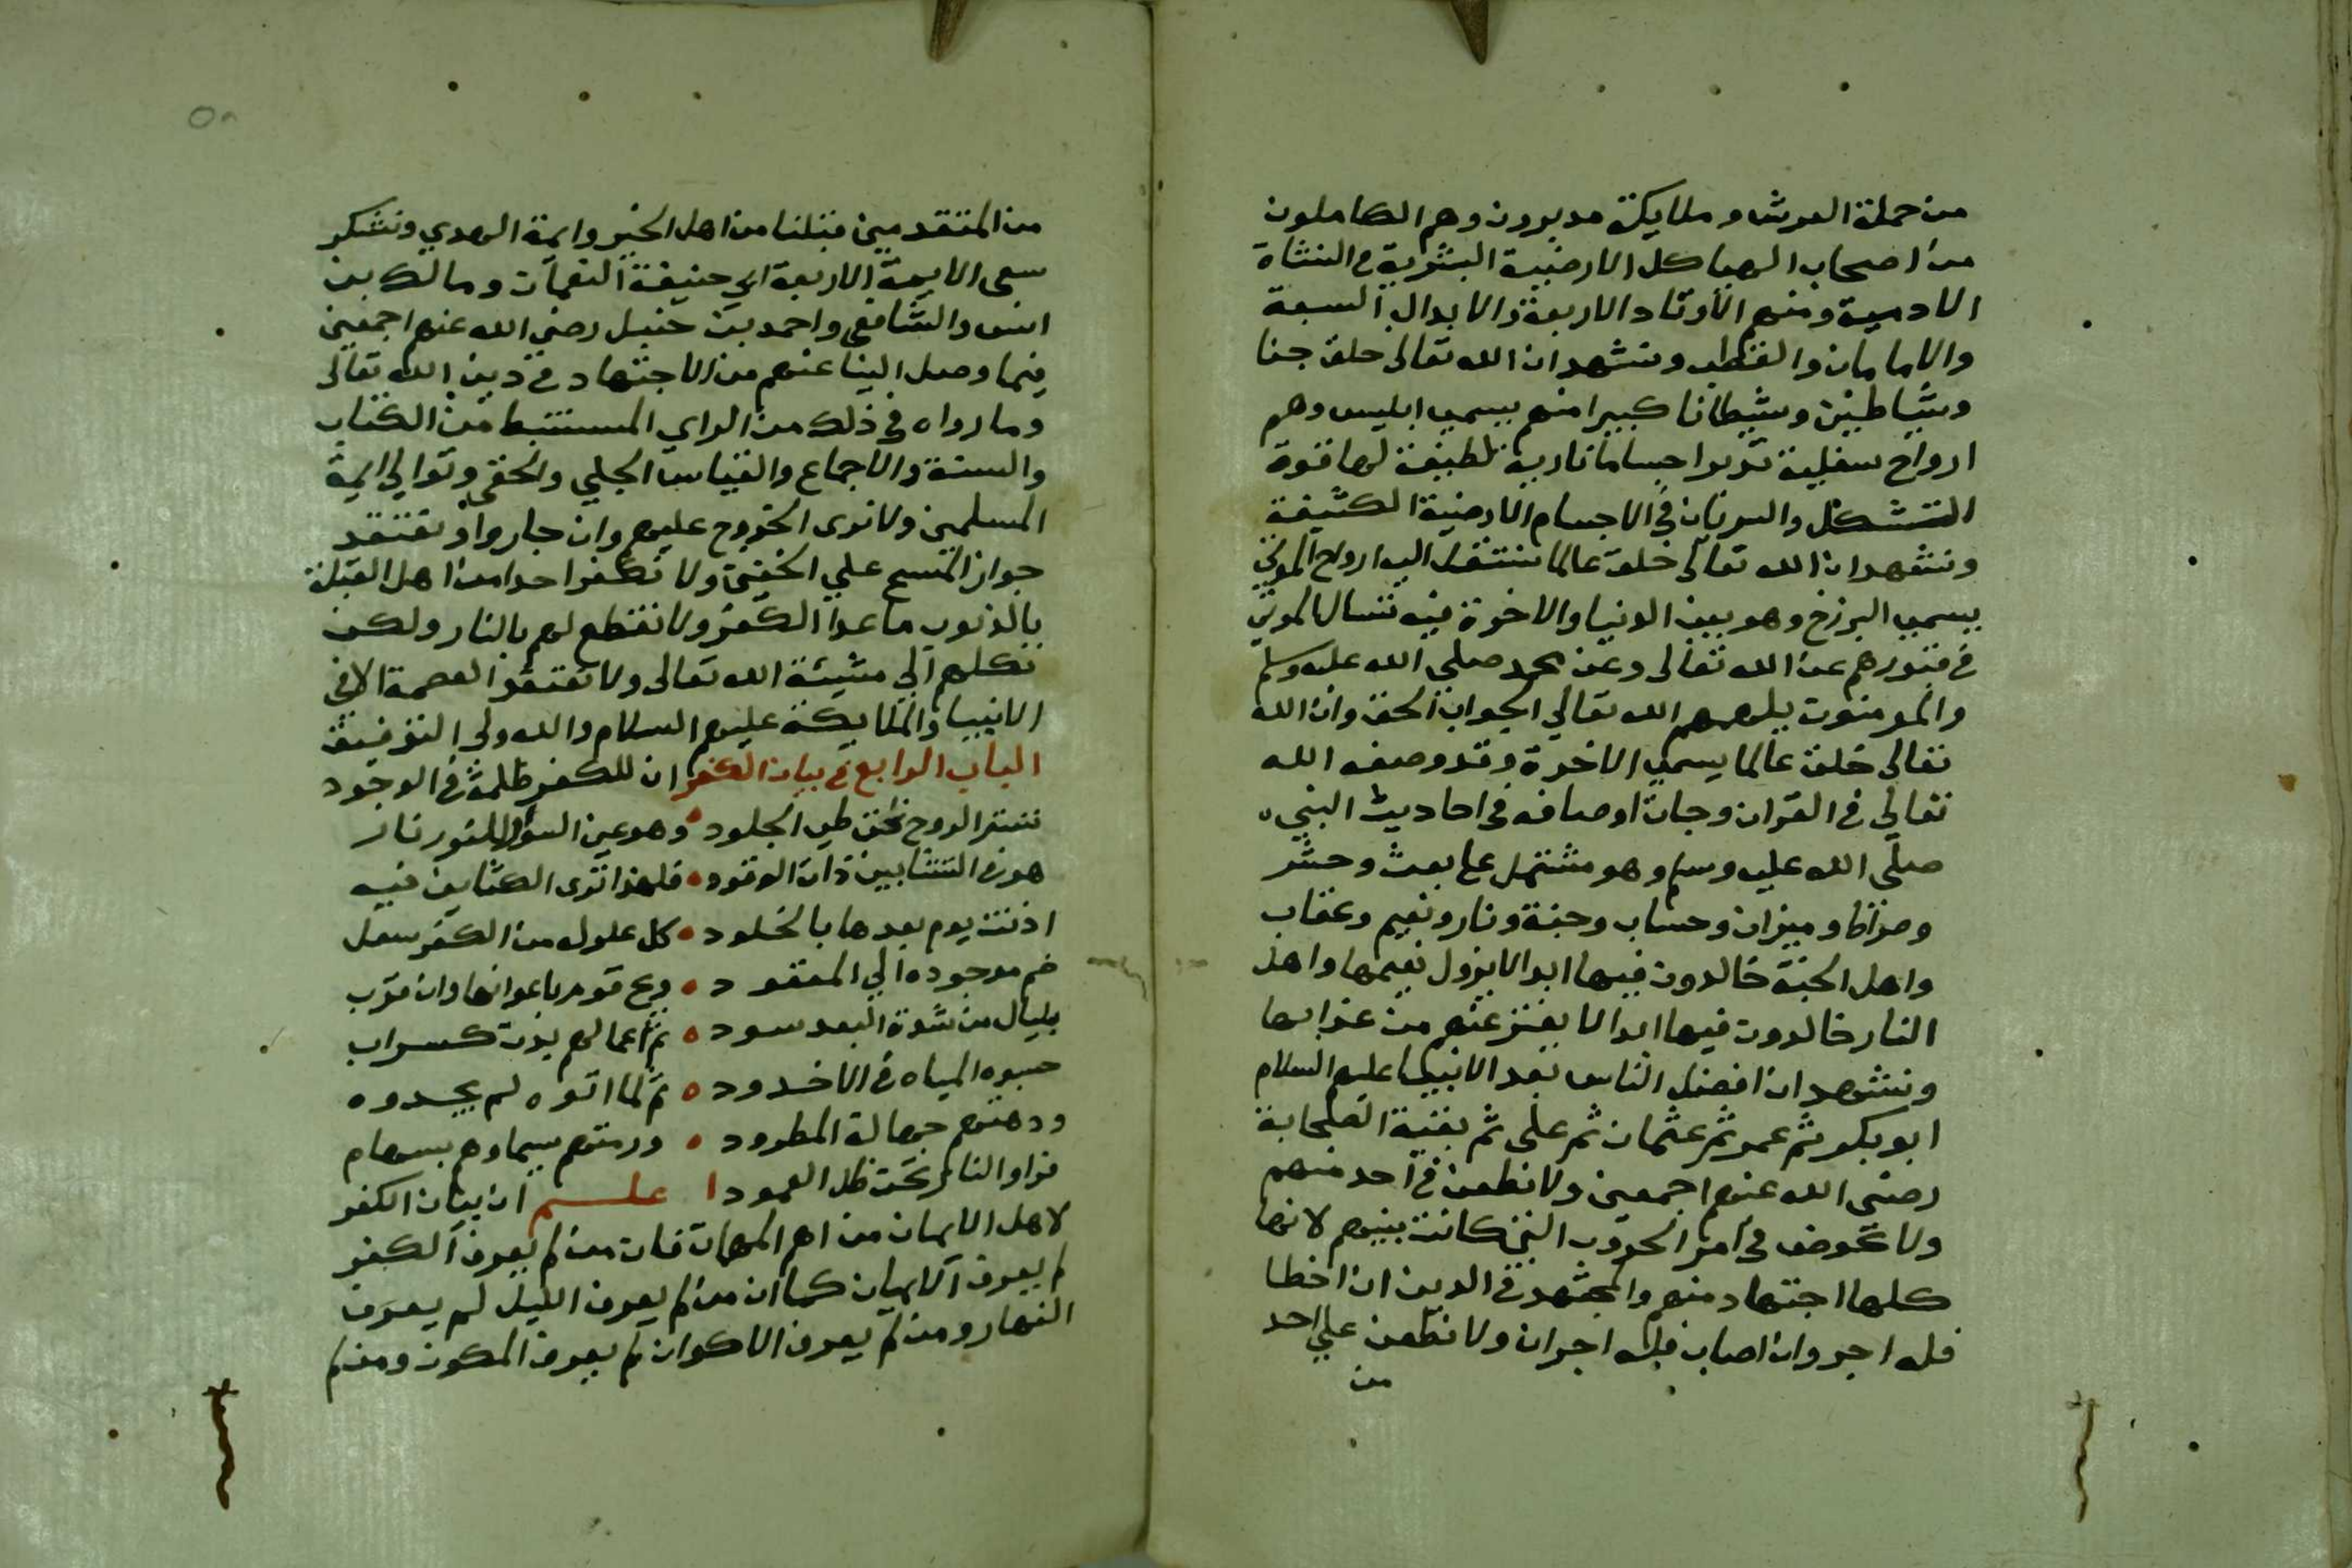 من حملة العرش وملايكة مدبرون وهم الكاملون
من اصحاب الهياكل الارضية البشرية في النشاة
الادمية ومنهم الاوتاد الاربعة والابدال السبعة
والامامان والقطب ونشهد ان الله تعالى خلق جنا
وشياطين وشيطانا كبيرا منهم يسمى ابليس وهم
ارواح سفلية تدبر اجساما نارية لطيفة لها قوة
التشكل والسريان في الاجسام الارضية الكثيفة
ونشهد ان الله تعالى خلق عالما تنتقل اليه ارواح الموتى
يسمى البرزخ وهو بين الدنيا والاخرة فيه تسال الموتى
في قبورهم عن الله تعالى وعن محمد صلى الله عليه وسلم
والمومنون يلهمهم الله تعالى الجواب الحق وان الله
تعالى خلق عالما يسمى الاخرة وقد وصفه الله
تعالى في القران وجات اوصافه في احاديث النبي
صلى الله عليه وسلم وهو مشتمل على بعث وحشر
وصراط وميزان وحساب وجنة ونار ونعيم وعقاب
واهل الجنة خالدون فيها ابدا لا يزول نعيمها واهل
النار خالدون فيها ابدا لا يفتر عنهم من عذابها
ونشهد ان افضل الناس بعد الانبيا عليهم السلام
ابو بكر ثم عمر ثم عثمان ثم على ثم بقية الصحابة
رضى الله عنهم اجمعين ولا نطعن في احد منهم
ولا نخوض في امر الحروب التي كانت بينهم لانها
كلها اجتهاد منهم والمجتهد في الدين ان اخطا
فله اجر وان اصاب فله اجران ولا نطعن على احد
من
٥٨
من المتقدمين قبلنا من اهل الخير وايمة الهدي ونشكر
سعى الايمة الاربعة ابي حنيفة النعمان ومالك بن
انس والشافعى واحمد بن حنبل رضي الله عنهم اجمعين
فيما وصل الينا عنهم من الاجتهاد في دين الله تعالى
وما رواه في ذلك من الراي المستنبط من الكتاب
والسنة والاجماع والقياس الجلي والخفي ونوالي ايمة
المسلمين ولا نرى الخروج عليهم وان جاروا ونعتقد
جواز المسح علي الخفين ولا نكفر احدا من اهل القبلة
بالذنوب ما عدا الكفر ولا نقطع لهم بالنار ولكن
نكلهم الي مشيئة الله تعالى ولا نعتقد العصمة الا في
الانبيا والملايكة عليهم السلام والله ولى التوفيق
الباب الرابع في بيان الكفر ان للكفر ظلمة في الوجود
تستر الروح تحت طي الجلود وهو عين النور نار
هو في النشابين ذات الوقود فلهذا ترى الكثايف فيه
اذنت يوم بعدها بالخلود كل علول من الكفر سفل
ضم موجوده الي المفقود ويح قوم باعدانها وان قرب
بليال من شدة البعد سود ثم اعمالهم بدت كسراب
حسبوه المياه في الاخدود ثم لما اتوه لم يجدوه
ودهتهم جهالة المطرود ورمتهم سماوهم بسهام
فراو النار تحت ظل العمود اعلم ان بيان الكفر
لاهل الايمان من اهم المهمات فان من لم يعرف الكفر
لم يعرف الايمان كما ان من لم يعرف الليل لم يعرف
النهار ومن لم يعرف الاكوان لم يعرف المكون ومن لم